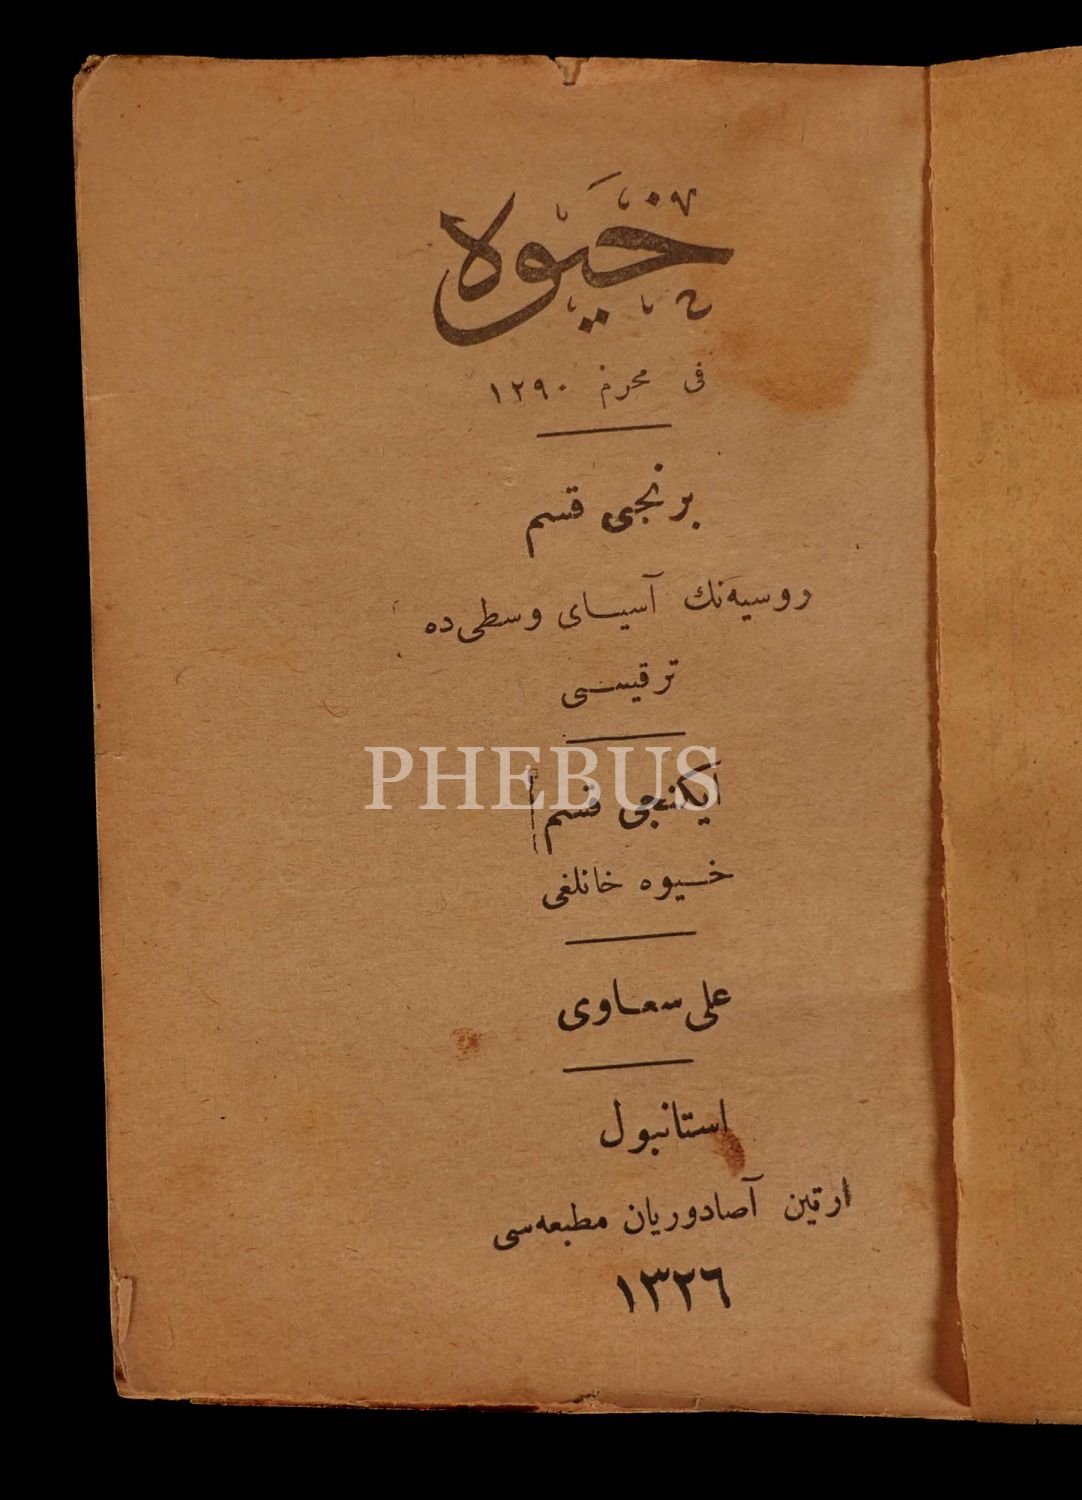 خیوه
فی محرم ١٢٩٠
برنجی قسم
روسیه‌نك آسیای وسطی‌ده
ترقیسی
PHEBUS
ایكنجی قسم
خیوه خانلغی
علی سعاوی
استانبول
ارتین آصادوریان مطبعه‌سی
١٣٢٦